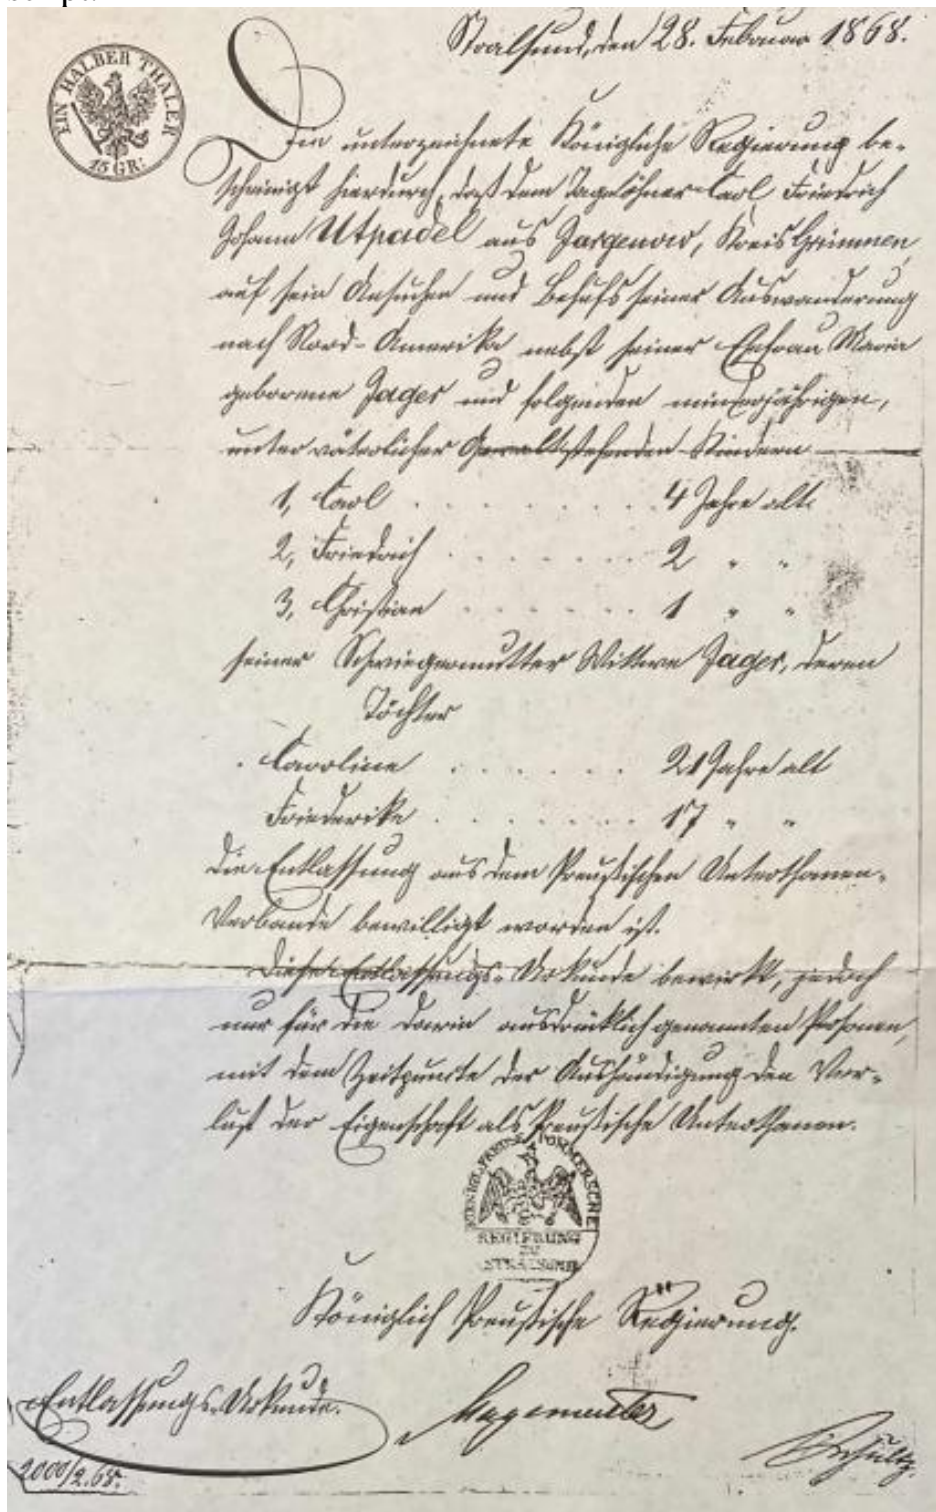 Stralsund, den 28. Februar 1868.
EIN HALBER THALER
15 GR:
Die unterzeichnete Königliche Regierung be-
scheinigt hierdurch, daß dem Tagelöhner Carl Friedrich
Johann Utpadel aus Jargenow, Kreis Grimmen,
auf sein Ansuchen und Behufs seiner Auswanderung
nach Nord-Amerika nebst seiner Ehefrau Maria
geborene Jager und folgenden minderjährigen,
unter väterlicher Gewalt stehenden Kindern
1, Carl . . . . . . . . . 4 Jahre alt
2, Friedrich . . . . . . . 2 " "
3, Christian . . . . . . . 1 " "
seiner Schwiegermutter Wittwe Jager, deren
Töchter
Caroline . . . . . . 21 Jahre alt
Friederike . . . . . . . . 17 " "
die Entlassung aus dem Preußischen Unterthanen-
Verbande bewilligt worden ist.
Diese Entlassungs-Urkunde bewirkt, jedoch
nur für die darin ausdrücklich genannten Personen,
mit dem Zeitpuncte der Aushändigung den Ver-
lust der Eigenschaft als Preußische Unterthanen.
KOENIGL. PREUSS. POMMERSCHE
REGIERUNG
ZU
STRALSUND
Königlich Preußische Regierung.
Entlassungs-Urkunde.
Hagemeister
Schultz.
2000/2.68.